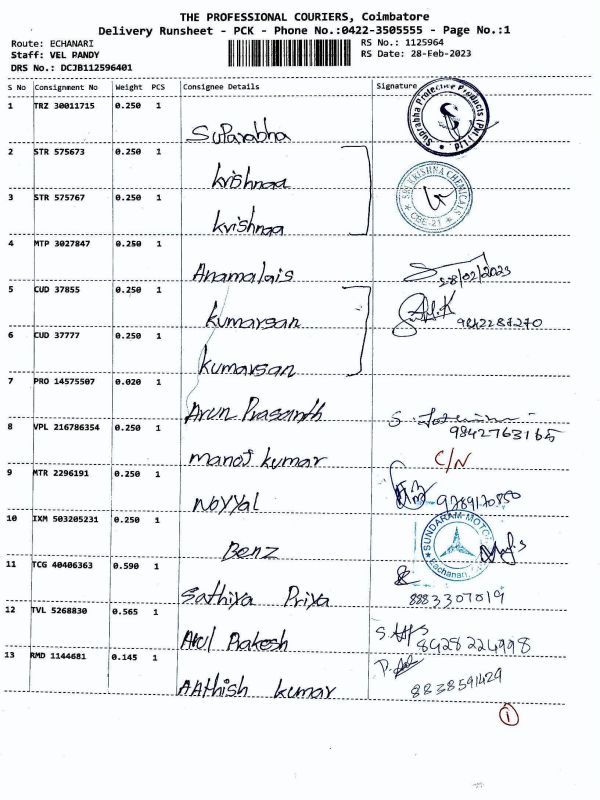 THE PROFESSIONAL COURIERS, Coimbatore
Delivery Runsheet - PCK - Phone No.:0422-3505555 - Page No.:1
Route: ECHANARI RS No.: 1125964
Staff: VEL PANDY RS Date: 28-Feb-2023
DRS No.: DCJB112596401
S No Consignment No Weight PCS Consignee Details Signature
1 TRZ 30011715 0.250 1
Suprabha Protective Products (P) Ltd
Suparabha
2 STR 575673 0.250 1
krishnaa
SRI KRISHNA CHEMICALS
CBE-21
3 STR 575767 0.250 1
krishnaa
4 MTP 3027847 0.250 1
Anamalais 28/02/2023
5 CUD 37855 0.250 1
kumarsan 9842287270
6 CUD 37777 0.250 1
kumarsan
7 PRO 14575507 0.020 1
Arun Prasanth
8 VPL 216786354 0.250 1
9842763165
manoj kumar C/N
9 MTR 2296191 0.250 1
Noyyal
10 IXM 503205231 0.250 1
SUNDARAM MOTORS
Eachanari
Benz
11 TCG 40406363 0.590 1
Sathiya Priya 8883307019
12 TVL 5268830 0.565 1
Arul Prakesh 8428224998
13 RMD 1144681 0.145 1
AAthish kumar 8838591429
1